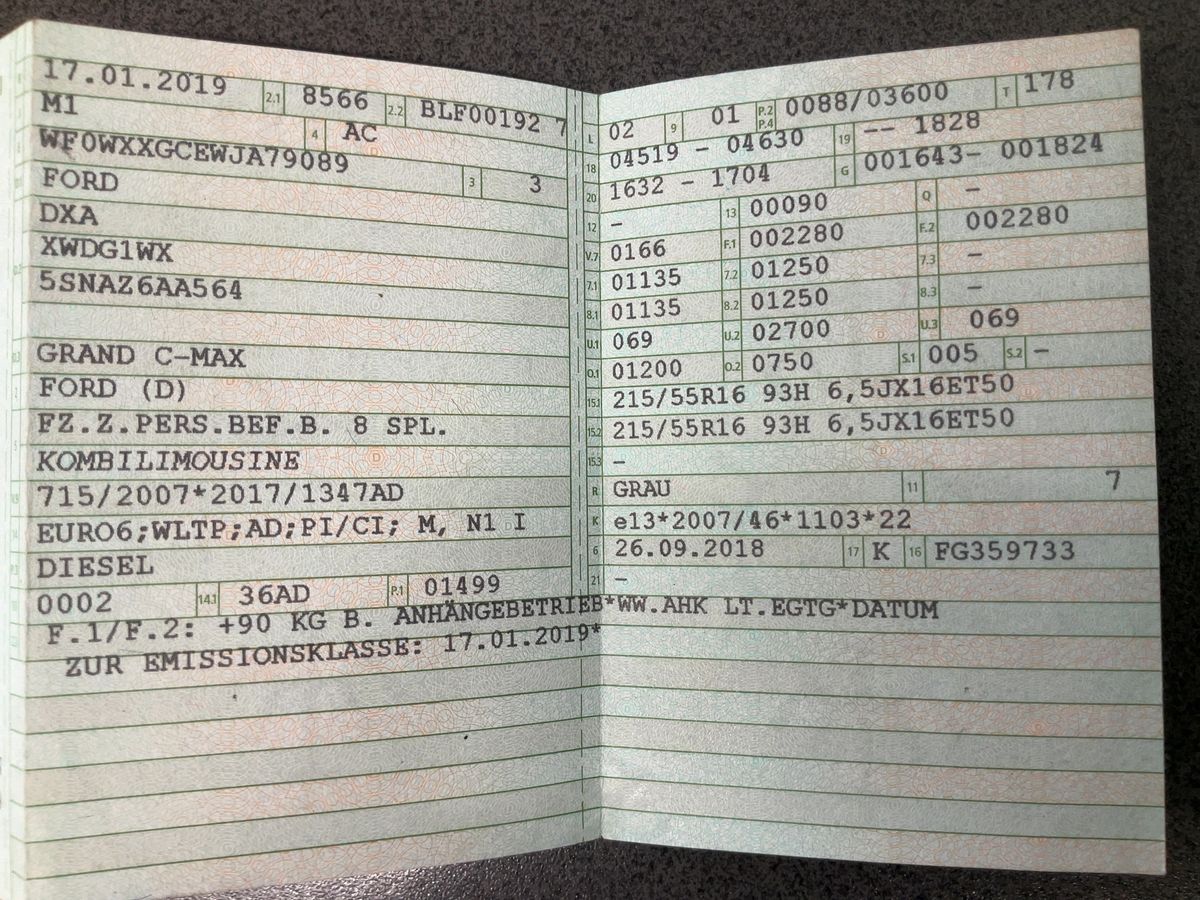 17.01.2019 2.1 8566 2.2 BLF00192 7
M1 4 AC
WF0WXXGCEWJA79089 3 3
FORD
DXA
XWDG1WX
5SNAZ6AA564
GRAND C-MAX
FORD (D)
FZ.Z.PERS.BEF.B. 8 SPL.
KOMBILIMOUSINE
715/2007*2017/1347AD
EURO6;WLTP;AD;PI/CI; M, N1 I
DIESEL
0002 14.1 36AD P.1 01499
L 02 9 01 P.2 P.4 0088/03600 T 178
18 04519 - 04630 19 -- 1828
20 1632 - 1704 G 001643- 001824
12 - 13 00090 Q -
V.7 0166 F.1 002280 F.2 002280
7.1 01135 7.2 01250 7.3 -
8.1 01135 8.2 01250 8.3 -
U.1 069 U.2 02700 U.3 069
O.1 01200 O.2 0750 S.1 005 S.2 -
15.1 215/55R16 93H 6,5JX16ET50
15.2 215/55R16 93H 6,5JX16ET50
15.3 -
R GRAU 11 7
K e13*2007/46*1103*22
6 26.09.2018 17 K 16 FG359733
21 -
F.1/F.2: +90 KG B. ANHÄNGEBETRIEB*WW.AHK LT.EGTG*DATUM
ZUR EMISSIONSKLASSE: 17.01.2019*